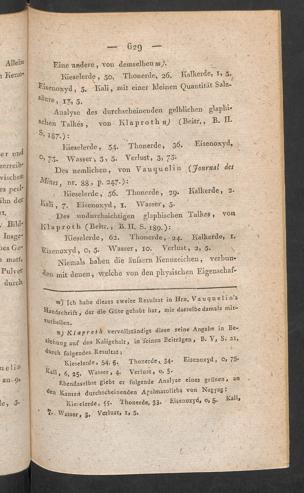 — 629 —
Eine andere, von demselben m).
Kieselerde, 50. Thonerde, 26. Kalkerde, 1, 5.
Eisenoxyd, 5. Kali, mit einer kleinen Quantität Salz-
säure, 17, 5.
Analyse des durchscheinenden gelblichen glaphi-
schen Talkes, von Klaproth n) (Beitr., B. II.
S. 187.):
Kieselerde, 54. Thonerde, 36. Eisenoxyd,
0, 75. Wasser, 5, 5. Verlust, 3, 75.
Des nemlichen, von Vauquelin (Journal des
Mines, nr. 88, p. 247.):
Kieselerde, 56. Thonerde, 29. Kalkerde, 2.
Kali, 7. Eisenoxyd, 1. Wasser, 5.
Des undurchsichtigen glaphischen Talkes, von
Klaproth (Beitr., B. II. S. 189.):
Kieselerde, 62. Thonerde, 24. Kalkerde, 1.
Eisenoxyd, 0, 5. Wasser, 10. Verlust, 2, 5.
Niemals haben die äußern Kennzeichen, verbun-
den mit denen, welche von den physischen Eigenschaf-
m) Ich habe dieses zweite Resultat in Hrn. Vauquelin's
Handschrift, der die Güte gehabt hat, mir dasselbe damals mit-
zutheilen.
n) Klaproth vervollständigt diese seine Angabe in Be-
ziehung auf den Kaligehalt, in seinen Beiträgen, B. V, S. 21,
durch folgendes Resultat:
Kieselerde, 54, 5. Thonerde, 34. Eisenoxyd, 0, 75.
Kali, 6, 25. Wasser, 4. Verlust, 0, 5.
Ebendaselbst giebt er folgende Analyse eines grünen, an
den Kanten durchscheinenden Agalmatoliths von Nagyag:
Kieselerde, 55. Thonerde, 33. Eisenoxyd, 0, 5. Kali,
7. Wasser, 3. Verlust, 1, 5.